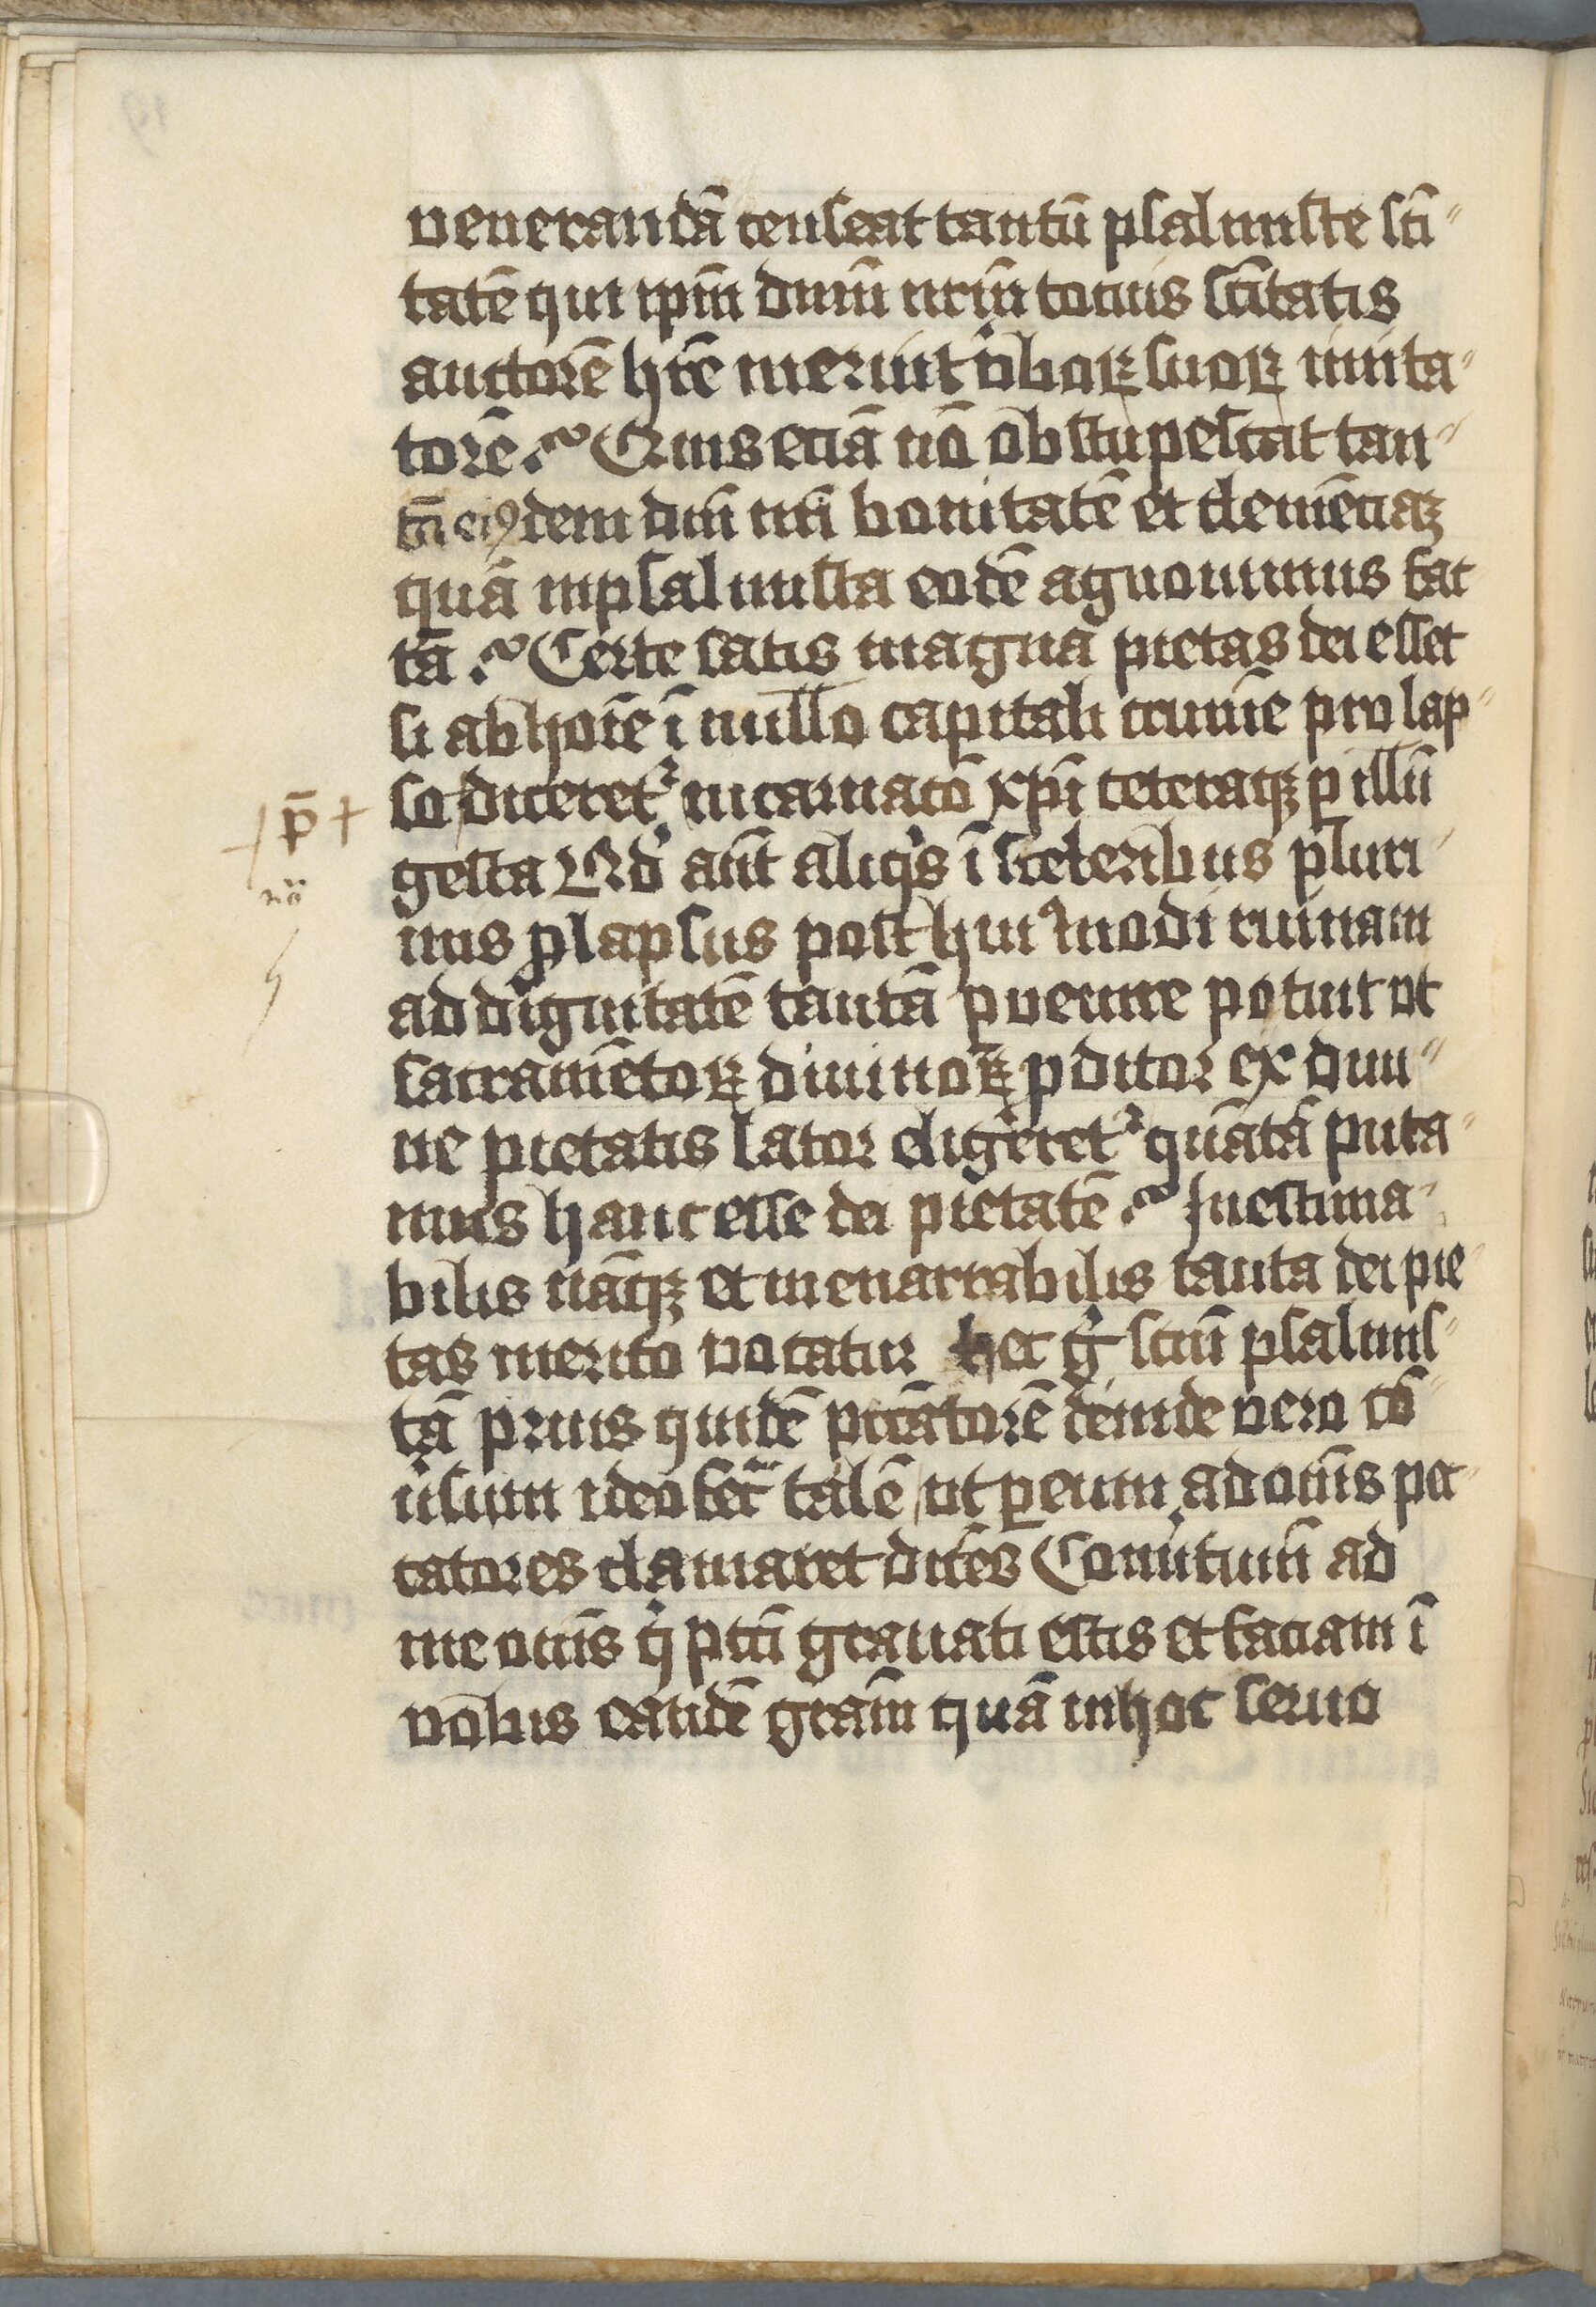 venerandā censeat tantū psalmiste scī
tatē qui ip̄m dnm̄ nrm̄ tocius sc̄itatis
auctorē hr̄e meruit v̓boꝝ suoꝝ imita
torē? Quis eciā nō obstupescat tan
tā eiꝰdem dnī nr̄i bonitatē et clemēciaꝫ
quā in psalmista eodē agnouimus fac
tā? Certe satis magna pietas dei esset
si ab hoīe ī nullo capitali crimīe prolap
so diceret᷑ incarnacō xp̄i ceteraqꝫ ꝑ illū
gesta Vbi aūt aliq̓s ī sceleribus pluri
mis ꝓlapsus post huiꝰmodi ruinam
ad dignitatē tantā ꝑuenire potuit ut
sacramētoꝝ diuinoꝝ p̄ditor ex diui
ne pietatis lator eligeret᷑ quātā puta
mus hanc esse dei pietatē? Inestima
bilis nāqꝫ et inenarrabilis tanta dei pie
tas merito vocatur hec g̓ scm̄ psalmis
tā prius quidē pccātorē deinde vero cō
u̓sum ideo fec̄ talē ut ꝑ eum ad om̄s pec
catores clamaret dicēs Conu̓timī ad
me om̄s q̓ pccī grauati estis et faciam ī
vobis eandē grām quā in hoc seruo
p̄
nō